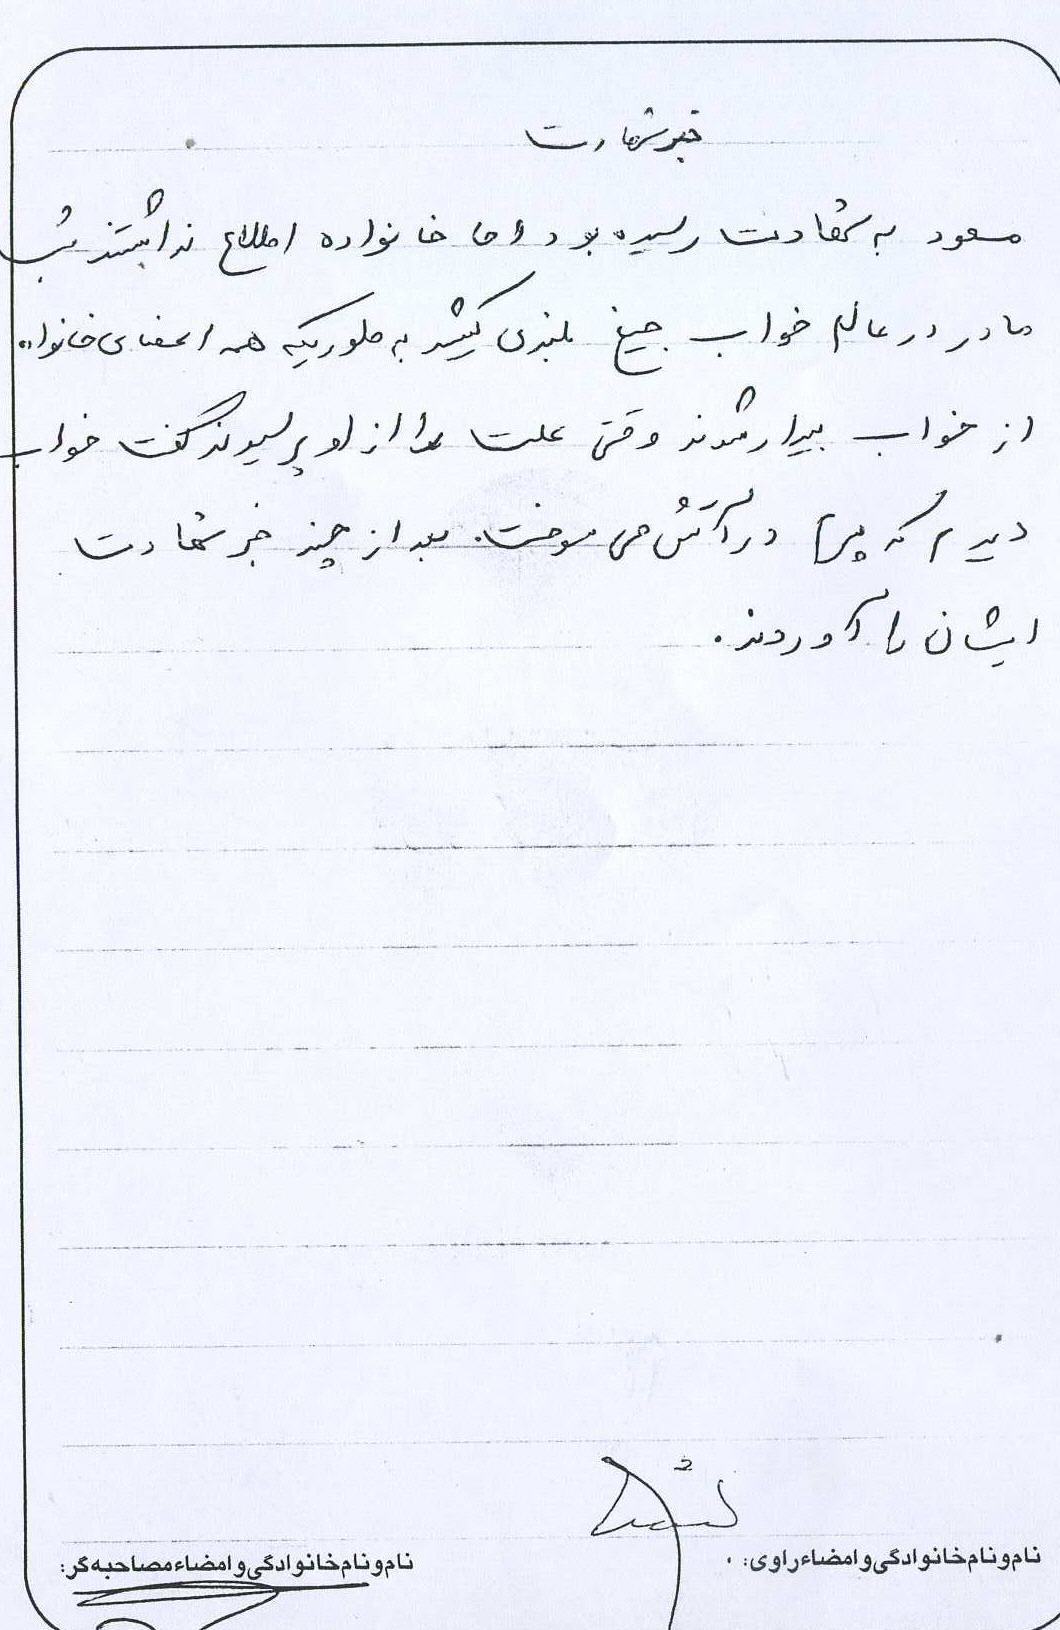 خبر شهادت
مسعود به شهادت رسیده بود اما خانواده اطلاع نداشتند شب
مادر در عالم خواب جیغ بلندی کشید به طوریکه همه اعضای خانواده
از خواب بیدار شدند وقتی علت را از او پرسیدند گفت خواب
دیدم که پسرم در آتش می سوخت. بعد از چند خبر شهادت
ایشان را آوردند.
نام و نام خانوادگی و امضاء راوی:
نام و نام خانوادگی و امضاء مصاحبه گر: